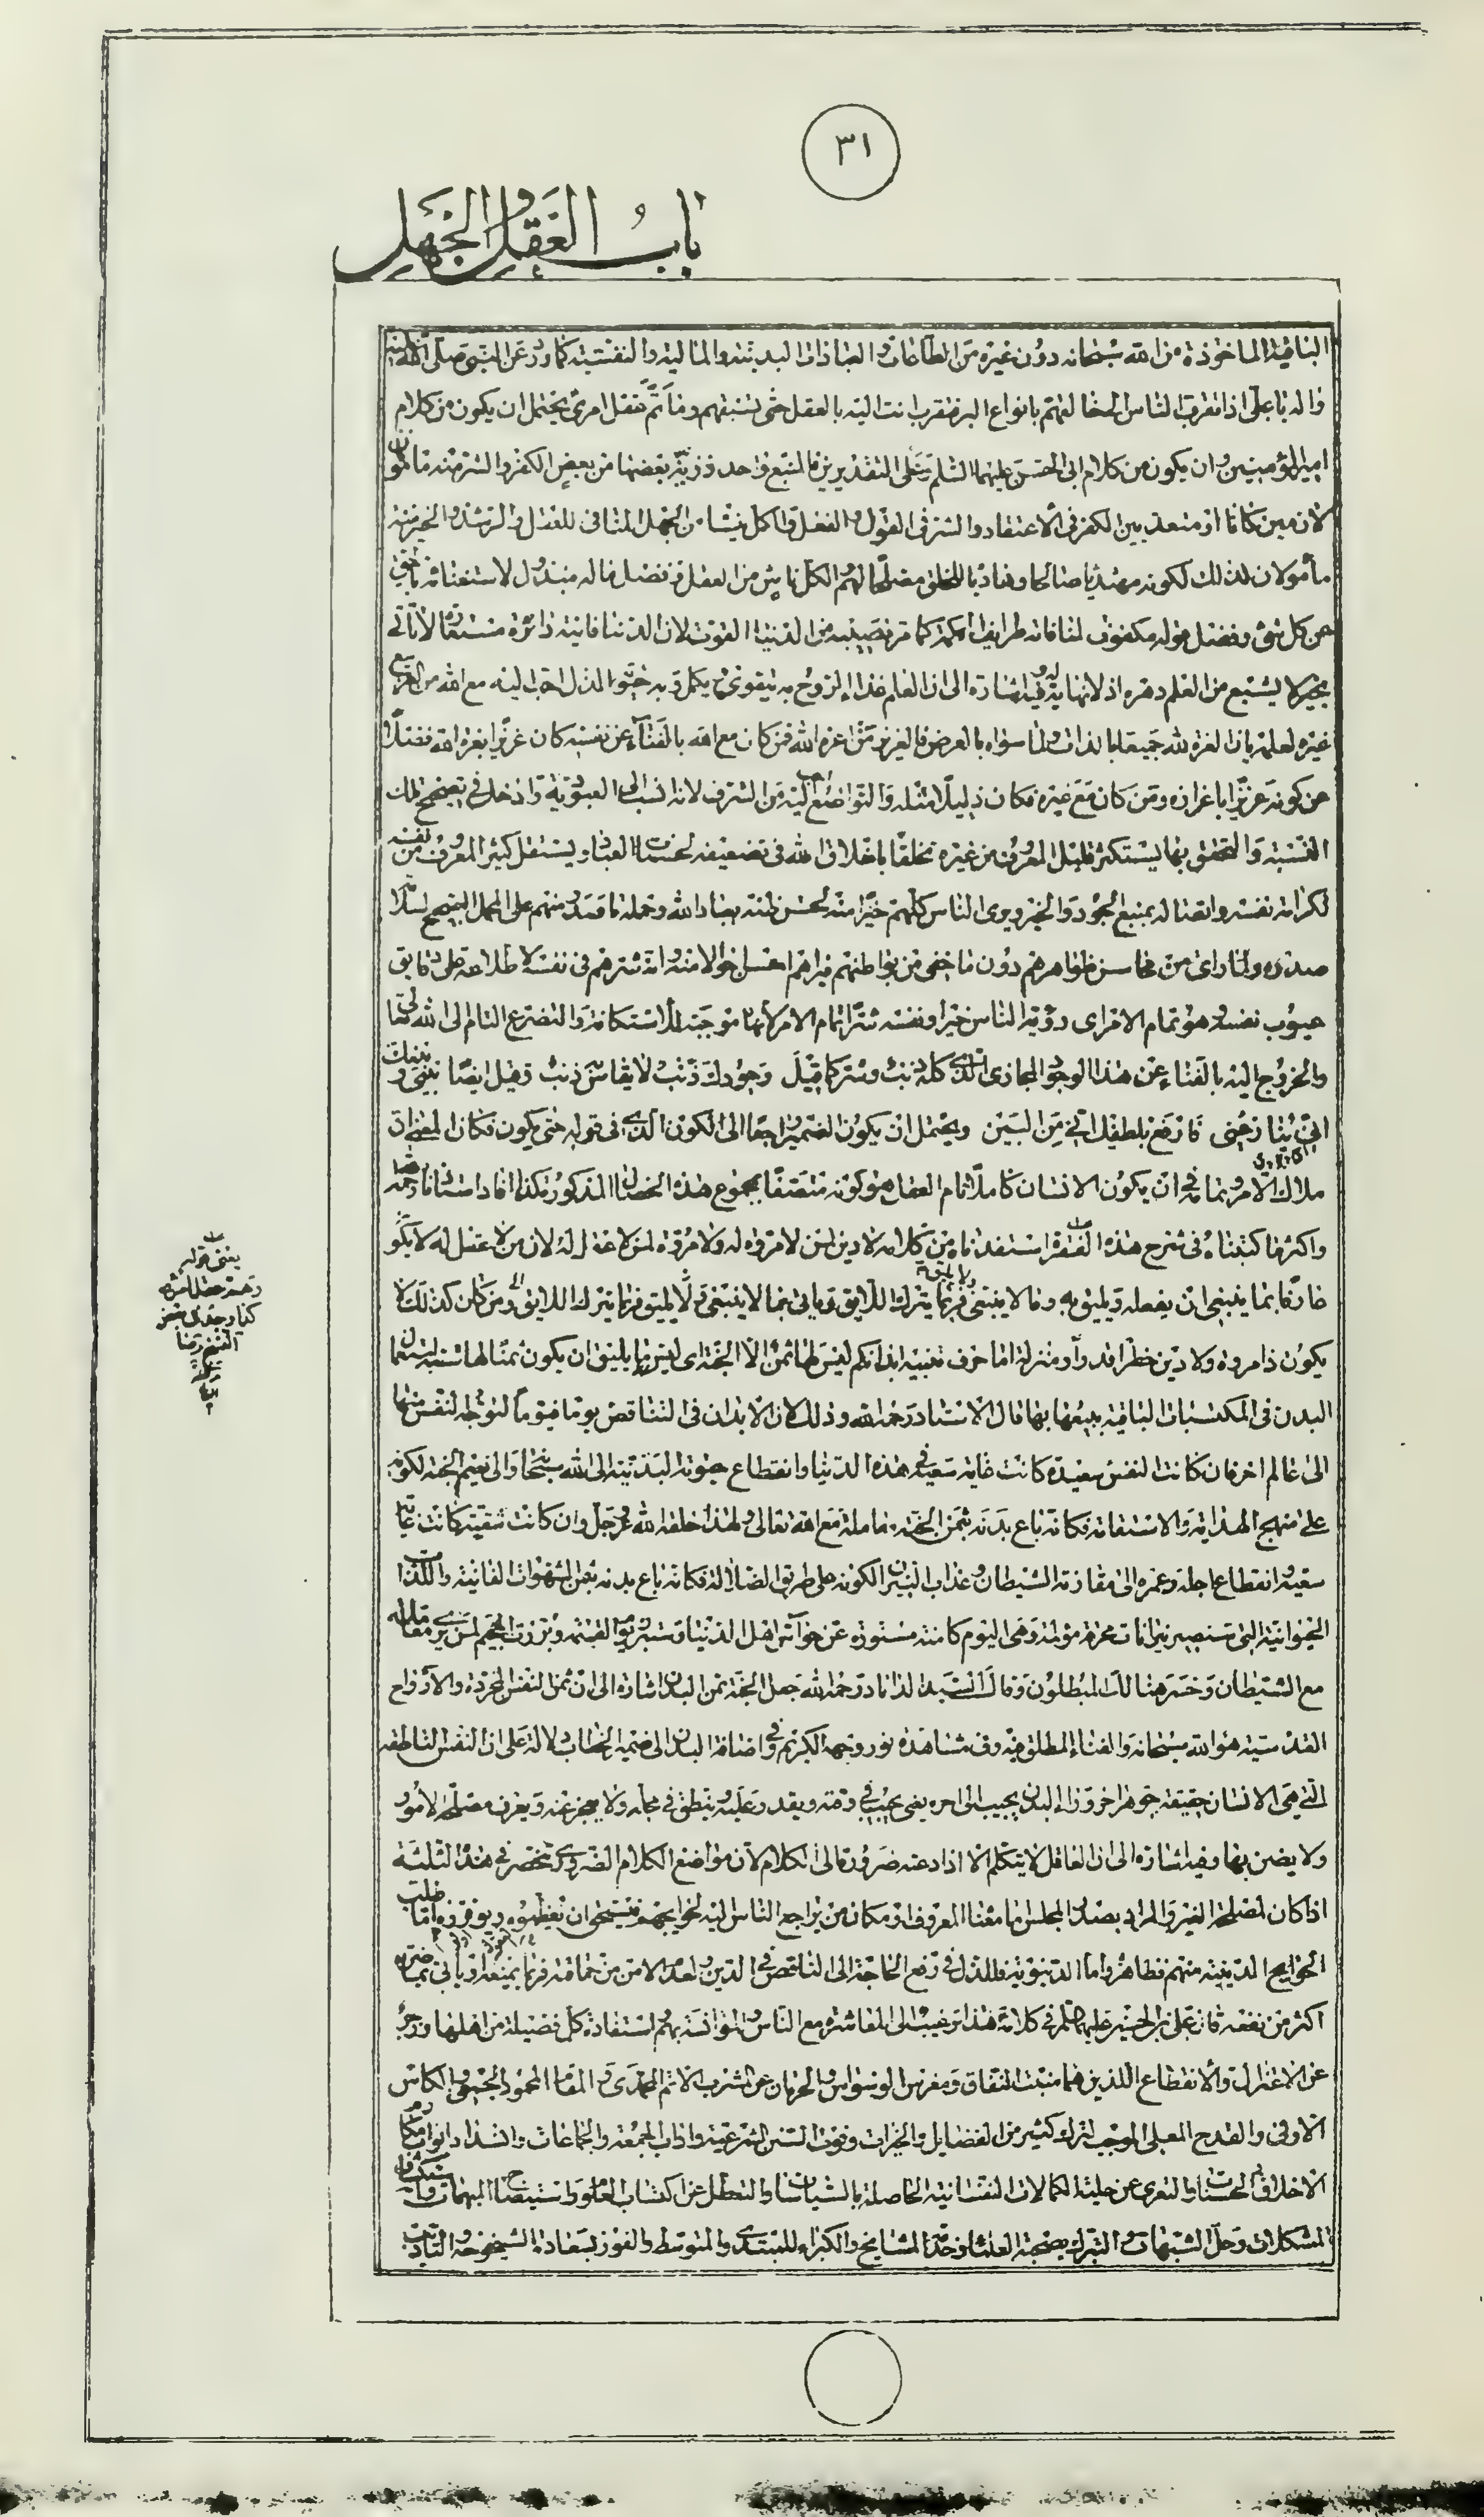 ٣١
باب العقل والجهل
الباقية الماخوذة من الله سبحانه دون غيره من الطاعات والعبادات البدنية والمالية والنفسية كما ورد عن النبي صلى الله عليه
واله يا على اذا تقرب الناس الى خالقهم بانواع البر فتقرب انت اليه بالعقل حتى تسبقهم وما تم عقل امرئ يحتمل ان يكون من كلام
امير المؤمنين وان يكون من كلام ابى الحسن عليهما السلم وعلى التقديرين فالمتبع واحد ذرية بعضها من بعض الكفر والشر منه مامونان
لان من كانا او منعه بين الكفر فى الاعتقاد والشر فى القول والفعل والكل ينشا من الجهل المنافى للعقل والرشد والخير منه
مأمولان لذلك لكونه مهتديا صالحا وهاديا للخلق مصلحا لهم والكل ناش من العقل وفضل ماله مبذول لاستغنائه بالحق
عن كل شئ وفضل قوله مكفوف لمنافاته طرايق الحكمة كما مر نصيبه من الدنيا القوت لان الدنيا فانية دائرة مستعارة لا تأتى
بخير لا يشبع من العلم دهره اذ لا نهاية له وفيه اشارة الى ان العلم غذاء الروح به يتقوى ويكمل وبه حيوته الذل احب اليه مع الله من العز مع
غيره لعلمه بان العزة لله جميعا بالذات ولما سواه بالعرض فالعزيز من اعزه الله فمن كان مع الله بالفناء عن نفسه كان عزيزا بعزة الله فضلا
عن كونه عزيزا باعزازه ومن كان مع غيره فكان ذليلا مثله والتواضع احب اليه من الشرف لانه انسب الى العبودية وادخل فى تصحيح تلك
النسبة والتحقق بها يستكثر قليل المعروف من غيره تخلقا باخلاق الله فى تضعيفه لحسنات العباد ويستقل كثير المعروف من نفسه
لكرامة نفسه واتصاله بمنبع الجود والخير ويرى الناس كلهم خيرا منه لحسن ظنه بعباد الله وحمله ما صدر منهم على المحمل الصحيح لسلامة
صدره ولما راى من محاسن ظواهرهم دون ما خفى من بواطنهم فيراهم احسن حالا منه وانه شرهم فى نفسه لاطلاعه على دقايق
عيوب نفسه وهو تمام الامر اى رؤية الناس خيرا ونفسه شرا تمام الامر لانها موجبة للاستكانة والتضرع التام الى الله تعالى
والخروج اليه بالفناء عن هذا الوجود المجازى الذى كله ذنب وشر كما قيل وجودك ذنب لا يقاس به ذنب وقيل ايضا بينى وبينك
انى ينازعنى فارفع بلطفك انى من البين ويحتمل ان يكون الضمير راجعا الى الكون الذى فى قوله حتى يكون فكان المعنى ان
ملاك الامر وتمامه فى ان يكون الانسان كاملا تام العقل هو كونه متصفا بمجموع هذه الخصال المذكورة كذا افاد استادنا رحمه الله
واكثر ما كتبناه فى شرح هذه الفقرات استفدناه من كلامه لا دين لمن لا مروة له ولا مروة لمن لا عقل له لان من لا عقل له لا يكون
عارفا بما ينبغى ان يفعله ويليق به وما لا ينبغى ولا يليق به فربما يترك اللايق وياتى بما لا ينبغى ولا يليق فربما يترك اللايق ومن كان كذلك لا
يكون ذا مروة ولا دين خطرا قدرا ومنزلة اما حرف تنبيه ابدانكم ليس لها ثمن الا الجنة اى ليس ما يليق ان يكون ثمنا لها شبه استعمال
البدن فى المكتسبات الباقية ببيعها بها قال الاستاد رحمه الله وذلك لان الابدان فى التناقص يوما فيوما لتوجه النفس منها
الى عالم اخر فان كانت النفس سعيدة كانت غاية سعيه فى هذه الدنيا وانقطاع حيوته البدنية الى الله سبحانه والى نعيم الجنة لكونه
على منهج الهداية والاستقامة فكانه باع بدنه بثمن الجنة معاملة مع الله تعالى ولهذا خلقه الله عز وجل وان كانت شقية كانت غاية
سعيه وانقطاع اجله وعمره الى مقارنة الشيطان وعذاب النيران لكونه على طريق الضلالة فكانه باع بدنه بثمن الشهوات الفانية واللذات
الحيوانية التى ستصير نيرانات محرقة مؤلمة وهى اليوم كامنة مستورة عن حواس اهل الدنيا وستبرز يوم القيمة وبرزت الجحيم لمن يرى معاملة
مع الشيطان وخسر هنالك المبطلون وقال السيد الداماد رحمه الله جعل الجنة ثمن البدن اشارة الى ان ثمن النفس المجردة والارواح
القدسية هو الله سبحانه والفناء المطلق فيه وفى مشاهدة نور وجهه الكريم وفى اضافة البدن الى ضمير الخطاب دلالة على ان النفس الناطقة
التى هى الانسان حقيقة جوهر اخر وراء البدن يجيب الى اخره يعنى يجيب فى وقته ويقدر عليه وينطق فى محله ولا يعجز عنه ويعرف مصلحة الامور
ولا يضن بها وفيه اشارة الى ان العاقل لا يتكلم الا اذا دعته ضرورة الى الكلام لان مواضع الكلام الضرورى تنحصر فى هذه الثلثة
اذا كان لمصلحة الغير والمراد بصدر المجلس اما معناه المعروف او مكان من يراجع الناس اليه لحوايجهم فيستحق ان يعظموه ويوقروه اما طلب
الحوايج الدينية منهم فظاهر واما الدنيوية فللذل فى رفع الحاجة الى الناقص فى الدين ولعدم الامن من حماقته فربما يمنعه او يأتى بما ضره
اكثر من نفعه قال على بن الحسين عليهما السلم فى كلامه هذا ترغيب الى المعاشرة مع الناس والمؤانسة بهم واستفادة كل فضيلة من اهلها وزجر
عن الاعتزال والانقطاع اللذين هما منبت النفاق ومغرس الوسواس والحرمان عن المشرب الاتم المحمدى والمقام المحمود الجمعى والكاس
الاوفى والقدح المعلى الموجب لترك كثير من الفضايل والخيرات وفوت السنن الشرعية واداب الجمعة والجماعات وانسداد ابواب مكارم
الاخلاق الحسنات والتعرى عن حلية الكمالات النفسانية الحاصلة بالسياسات والتعطل عن اكتساب العلوم واستيضاح المبهمات
المشكلات وحل الشبهات والتبرك بصحبة العلماء وخدمة المشايخ والكبراء للمبتدى والمتوسط والفوز بسعادة الشيخوخة
يعنى قوله
الشيخ رضا